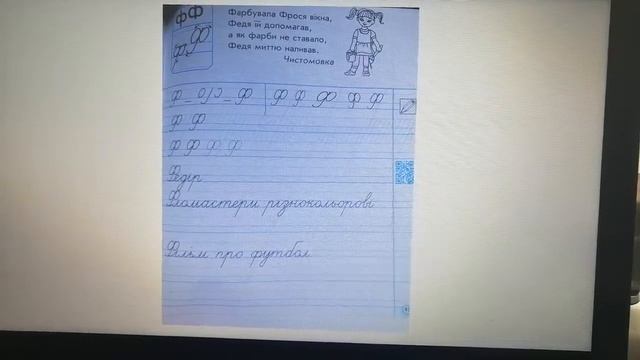 Фф
Фф
Фарбувала Фрося вікна,
Федя їй допомагав,
а як фарби не ставало,
Федя миттю наливав.
Чистомовка
Ф Ф Ф Ф Ф
Ф Ф
Ф Ф Ф Ф
Федір
Фломастери різнокольорові
Фільм про футбол